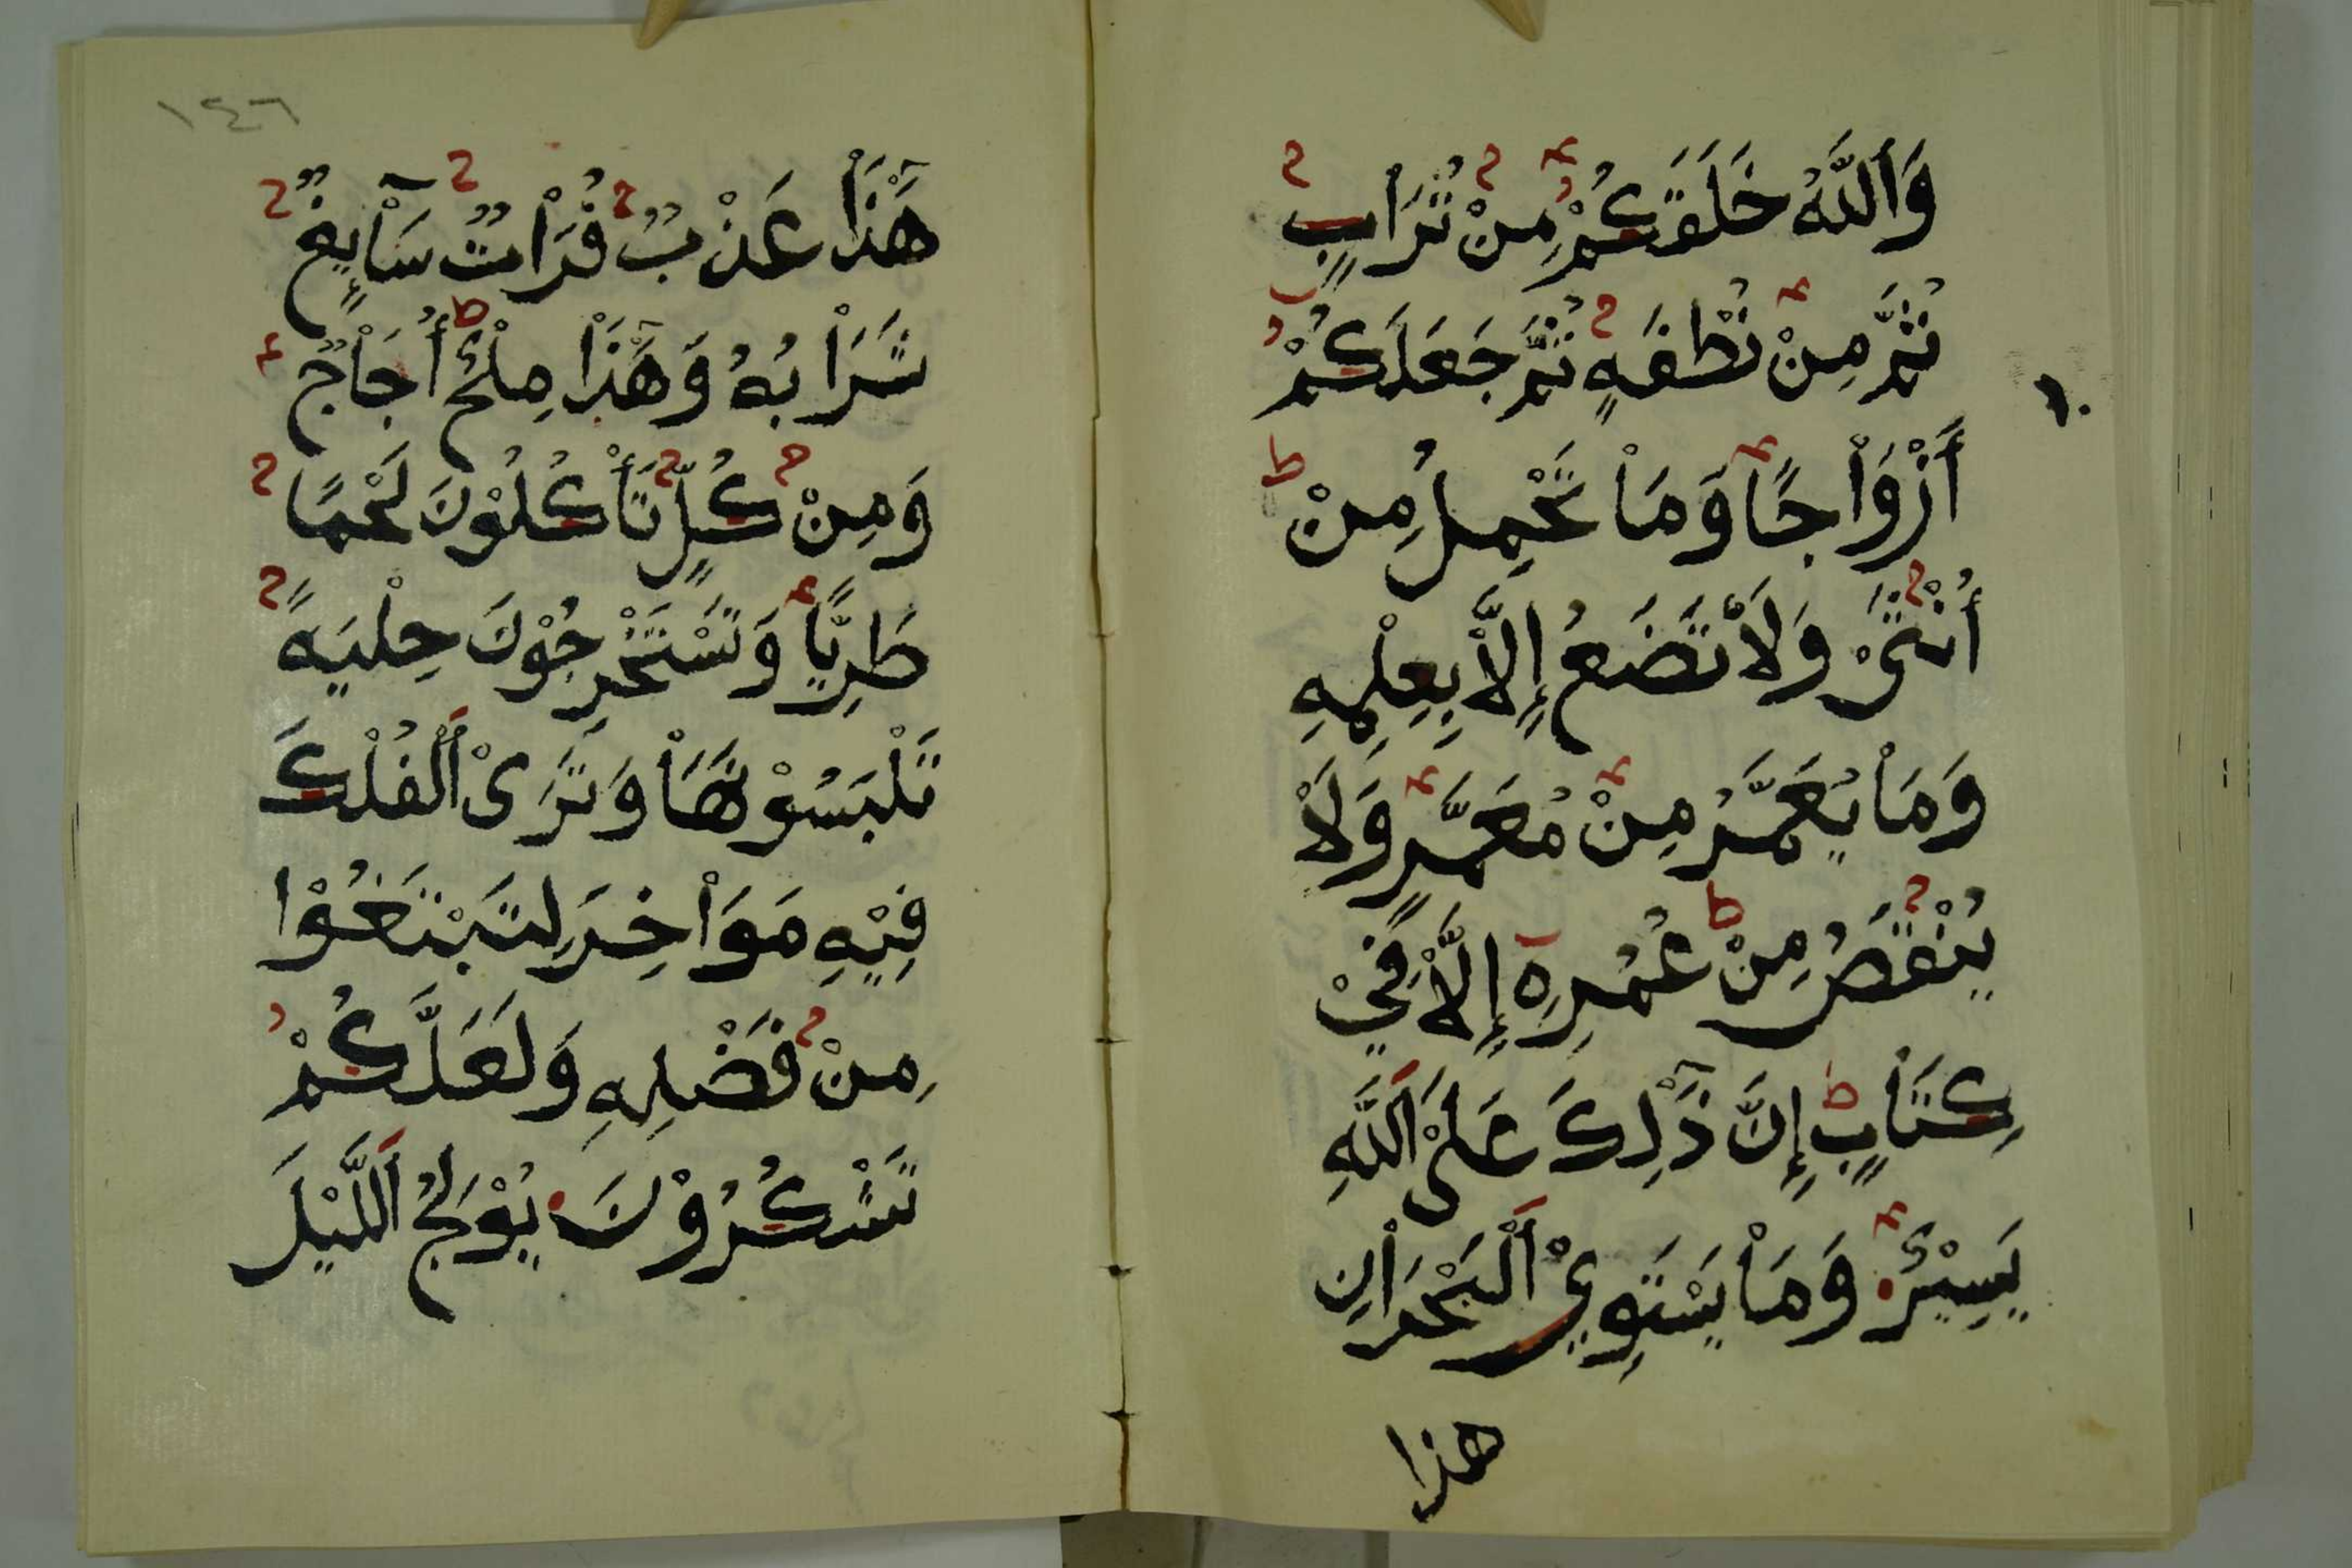 وَاَللَّهُ خَلَقَكُمْ مِنْ تُرَابٍ
ثُمَّ مِنْ نُطْفَةٍ ثُمَّ جَعَلَكُمْ
أَزْوَاْجًا وَمَاْ تَحْمِلُ مِنْ
أُنْثَىْ وَلَاْ تَضَعُ إِلَّاْ بِعِلْمِهِ
وَمَاْ يُعَمَّرُ مِنْ مُعَمَّرٍ وَلَاْ
يُنْقَصُ مِنْ عُمُرِهِ إِلَّاْ فِيْ
كِتَاْبٍ إِنَّ ذَٰلِكَ عَلَىْ اَللَّهِ
يَسِيْرٌ وَمَاْ يَسْتَوِيْ اَلْبَحْرَاْنِ
هذا
١٤٦
هَٰذَاْ عَذْبٌ فُرَاْتٌ سَاْئِغٌ
شَرَاْبُهُ وَهَٰذَاْ مِلْحٌ أُجَاْجٌ
وَمِنْ كُلٍّ تَأْكُلُوْنَ لَحْمًا
طَرِيًّا وَتَسْتَخْرِجُوْنَ حِلْيَةً
تَلْبَسُوْنَهَاْ وَتَرَىْ اَلْفُلْكَ
فِيْهِ مَوَاْخِرَ لِتَبْتَغُوْا
مِنْ فَضْلِهِ وَلَعَلَّكُمْ
تَشْكُرُوْنَ يُوْلِجُ اَللَّيْلَ